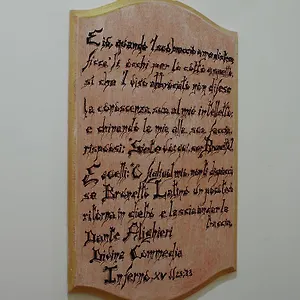 E io, quando 'l suo braccio a me distese,
ficca' li occhi per lo cotto aspetto,
sì che 'l viso abbruciato non difese
la conoscenza sua al mio intelletto;
e chinando la mia alla sua faccia,
risposi: "Siete voi qui, ser Brunetto?"
E quelli: "O figliuol mio, non ti dispiaccia
se Brunetto Latino un poco teco
ritorna in dietro e lascia andar la
traccia.
Dante Alighieri
Divina Commedia
Inferno XV